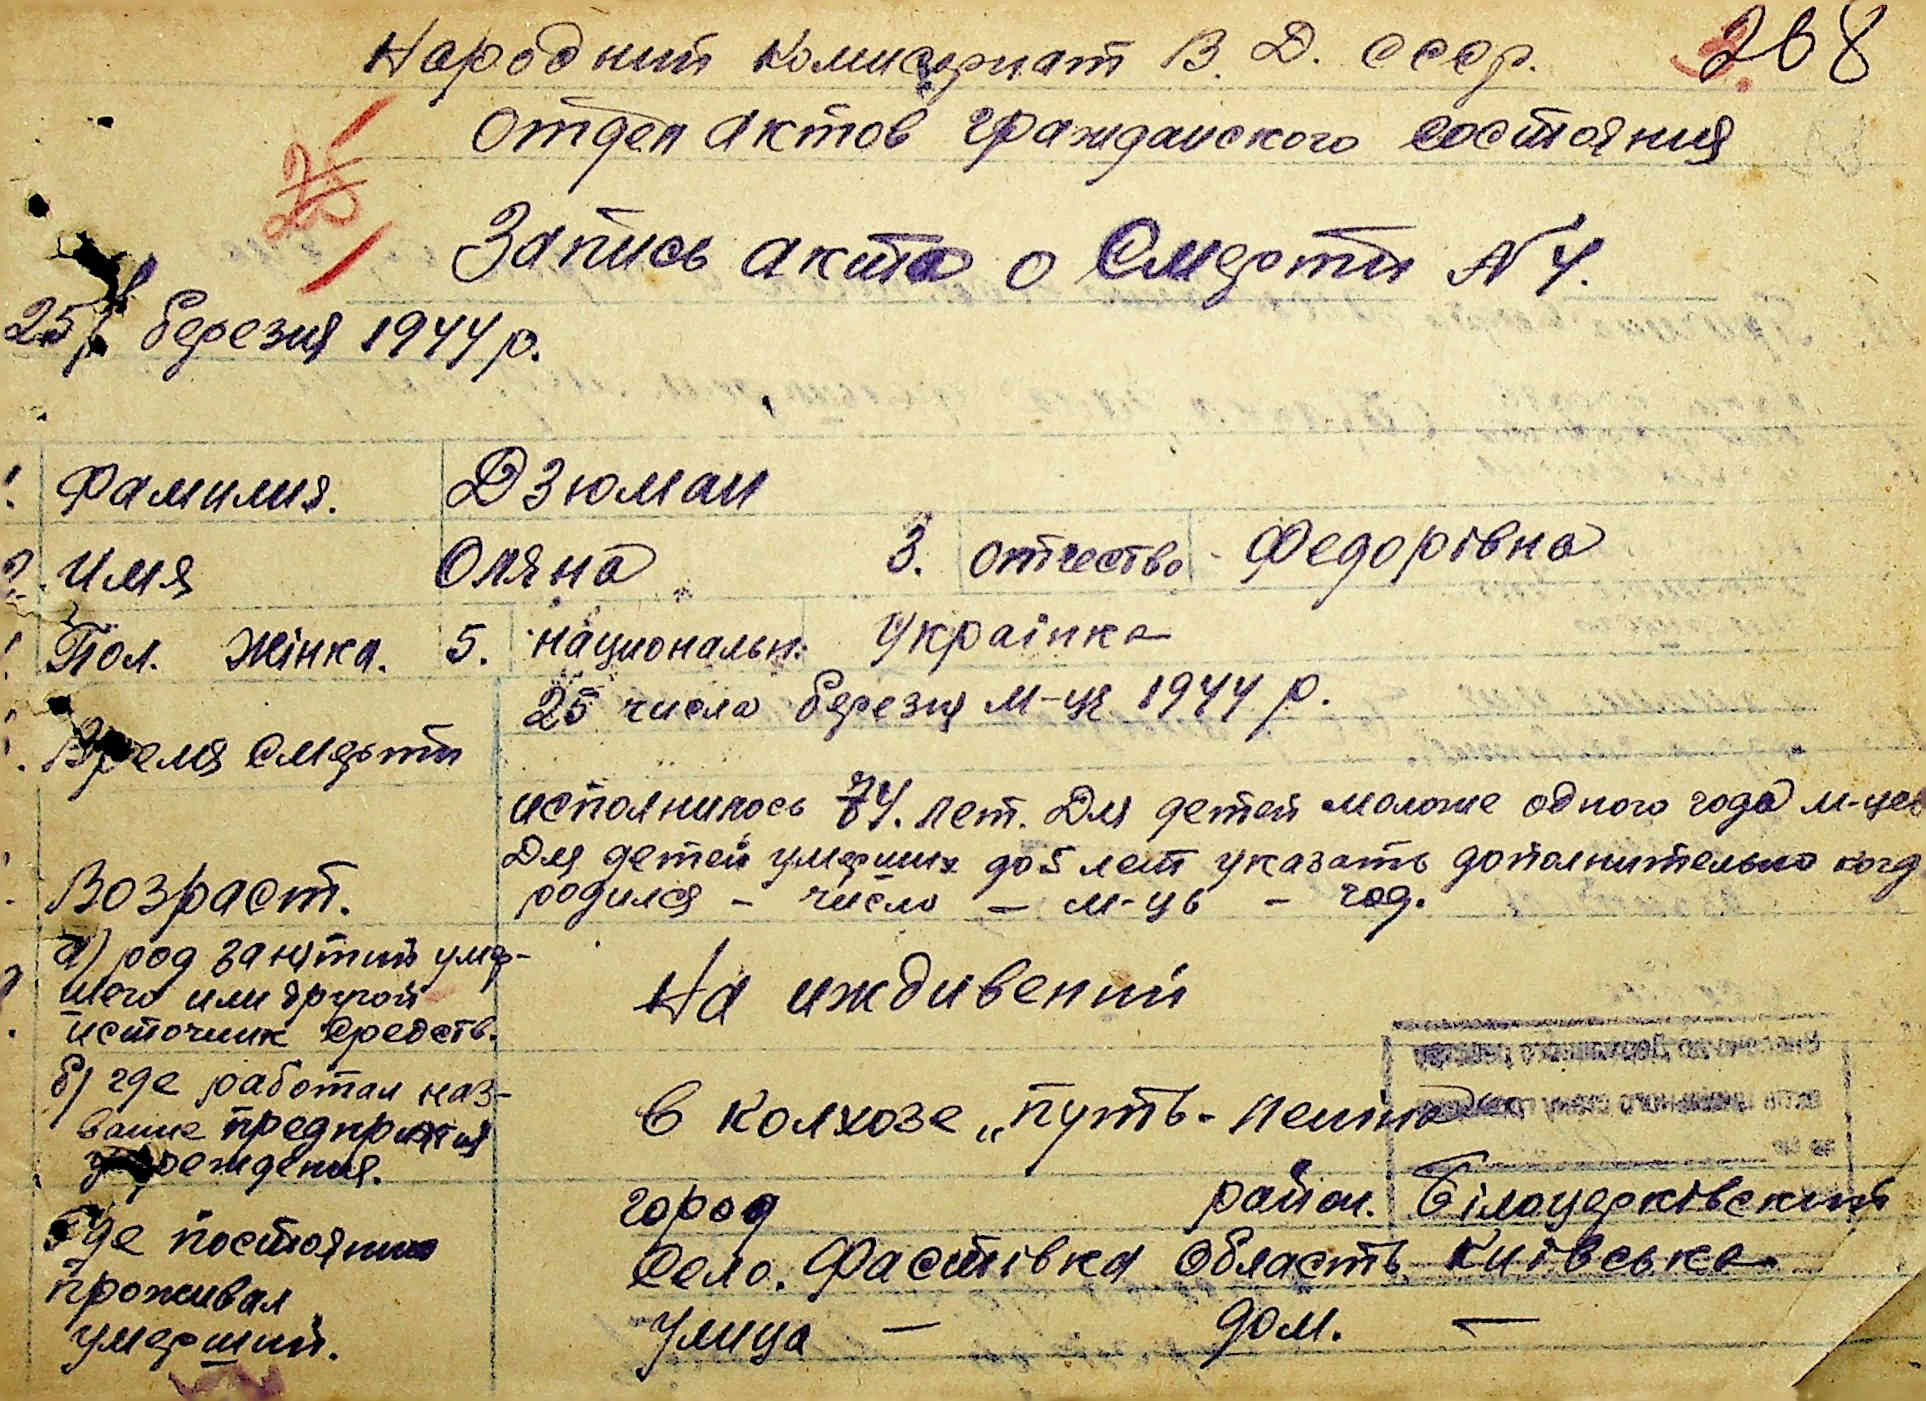 Народний комисериат В. Д. СССР. 268
25
Отдел актов гражданского состояния
Запись акта о Смерти N 4.
25 березня 1944 р.
Фамилия. Дзюман
2. Имя Оляна 3. отчество - Федорівна
Пол. Жінка. 5. национальн. Українка
Время смерти 25 числа березня м-ця 1944 р.
исполнилось 74. лет. Для детей моложе одного года м-цев
Для детей умерших до 5 лет указать дополнительно когд
Возраст. родился - число - м-ць - год.
а) род занятий умер-
шего или другой
источник средств.
На иждивений
б) где работал наз-
вание предприятия
учреждения.
в колхозе „путь- Леніна
Где постояно
проживал
умерший.
город район. Білоцерківский
Село. Фастівка Область Київська
Улица — дом. —